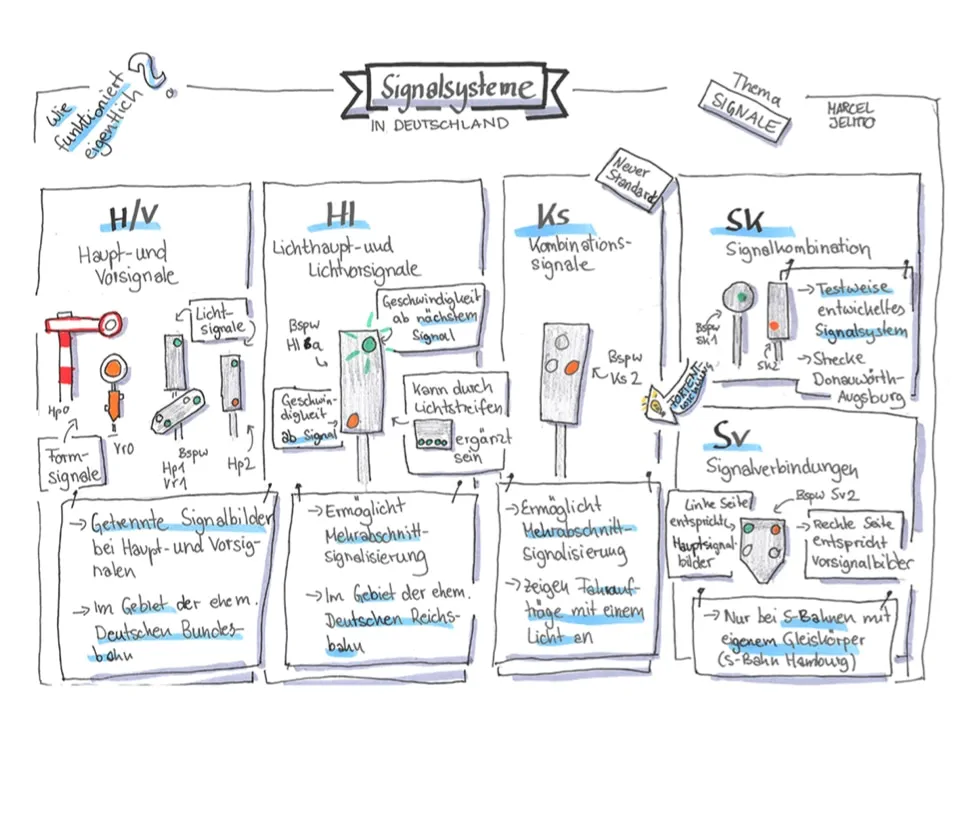 Wie
funktioniert
eigentlich
?
Signalsysteme
IN DEUTSCHLAND
Thema
SIGNALE
MARCEL
JELITTO
H/V
Haupt- und
Vorsignale
Licht-
signale
Hp0
Vr0
Form-
signale
Bspw
Hp1
Vr1
Hp2
→ Getrennte Signalbilder
bei Haupt- und Vorsig-
nalen
→ Im Gebiet der ehem.
Deutschen Bundes-
bahn
Hl
Lichthaupt- und
Lichtvorsignale
Bspw
Hl 3a
Geschwindigkeit
ab nächstem
Signal
Geschwin-
digkeit
ab Signal
Kann durch
Lichtstreifen
ergänzt
sein
→ Ermöglicht
Mehrabschnitt-
signalisierung
→ Im Gebiet der ehem.
Deutschen Reichs-
bahn
Neuer
Standard
Ks
Kombinations-
signale
Bspw
Ks 2
→ Ermöglicht
Mehrabschnitt-
signalisierung
→ zeigen Fahrauf-
träge mit einem
Licht an
SK
Signalkombination
Bspw
SK1
SK2
→ Testweise
entwickeltes
Signalsystem
→ Strecke
Donauwörth-
Augsburg
Sv
Signalverbindungen
Linke Seite
entspricht
Hauptsignal-
bilder
Bspw Sv2
→ Rechte Seite
entspricht
Vorsignalbilder
→ Nur bei S-Bahnen mit
eigenem Gleiskörper
(S-Bahn Hamburg)